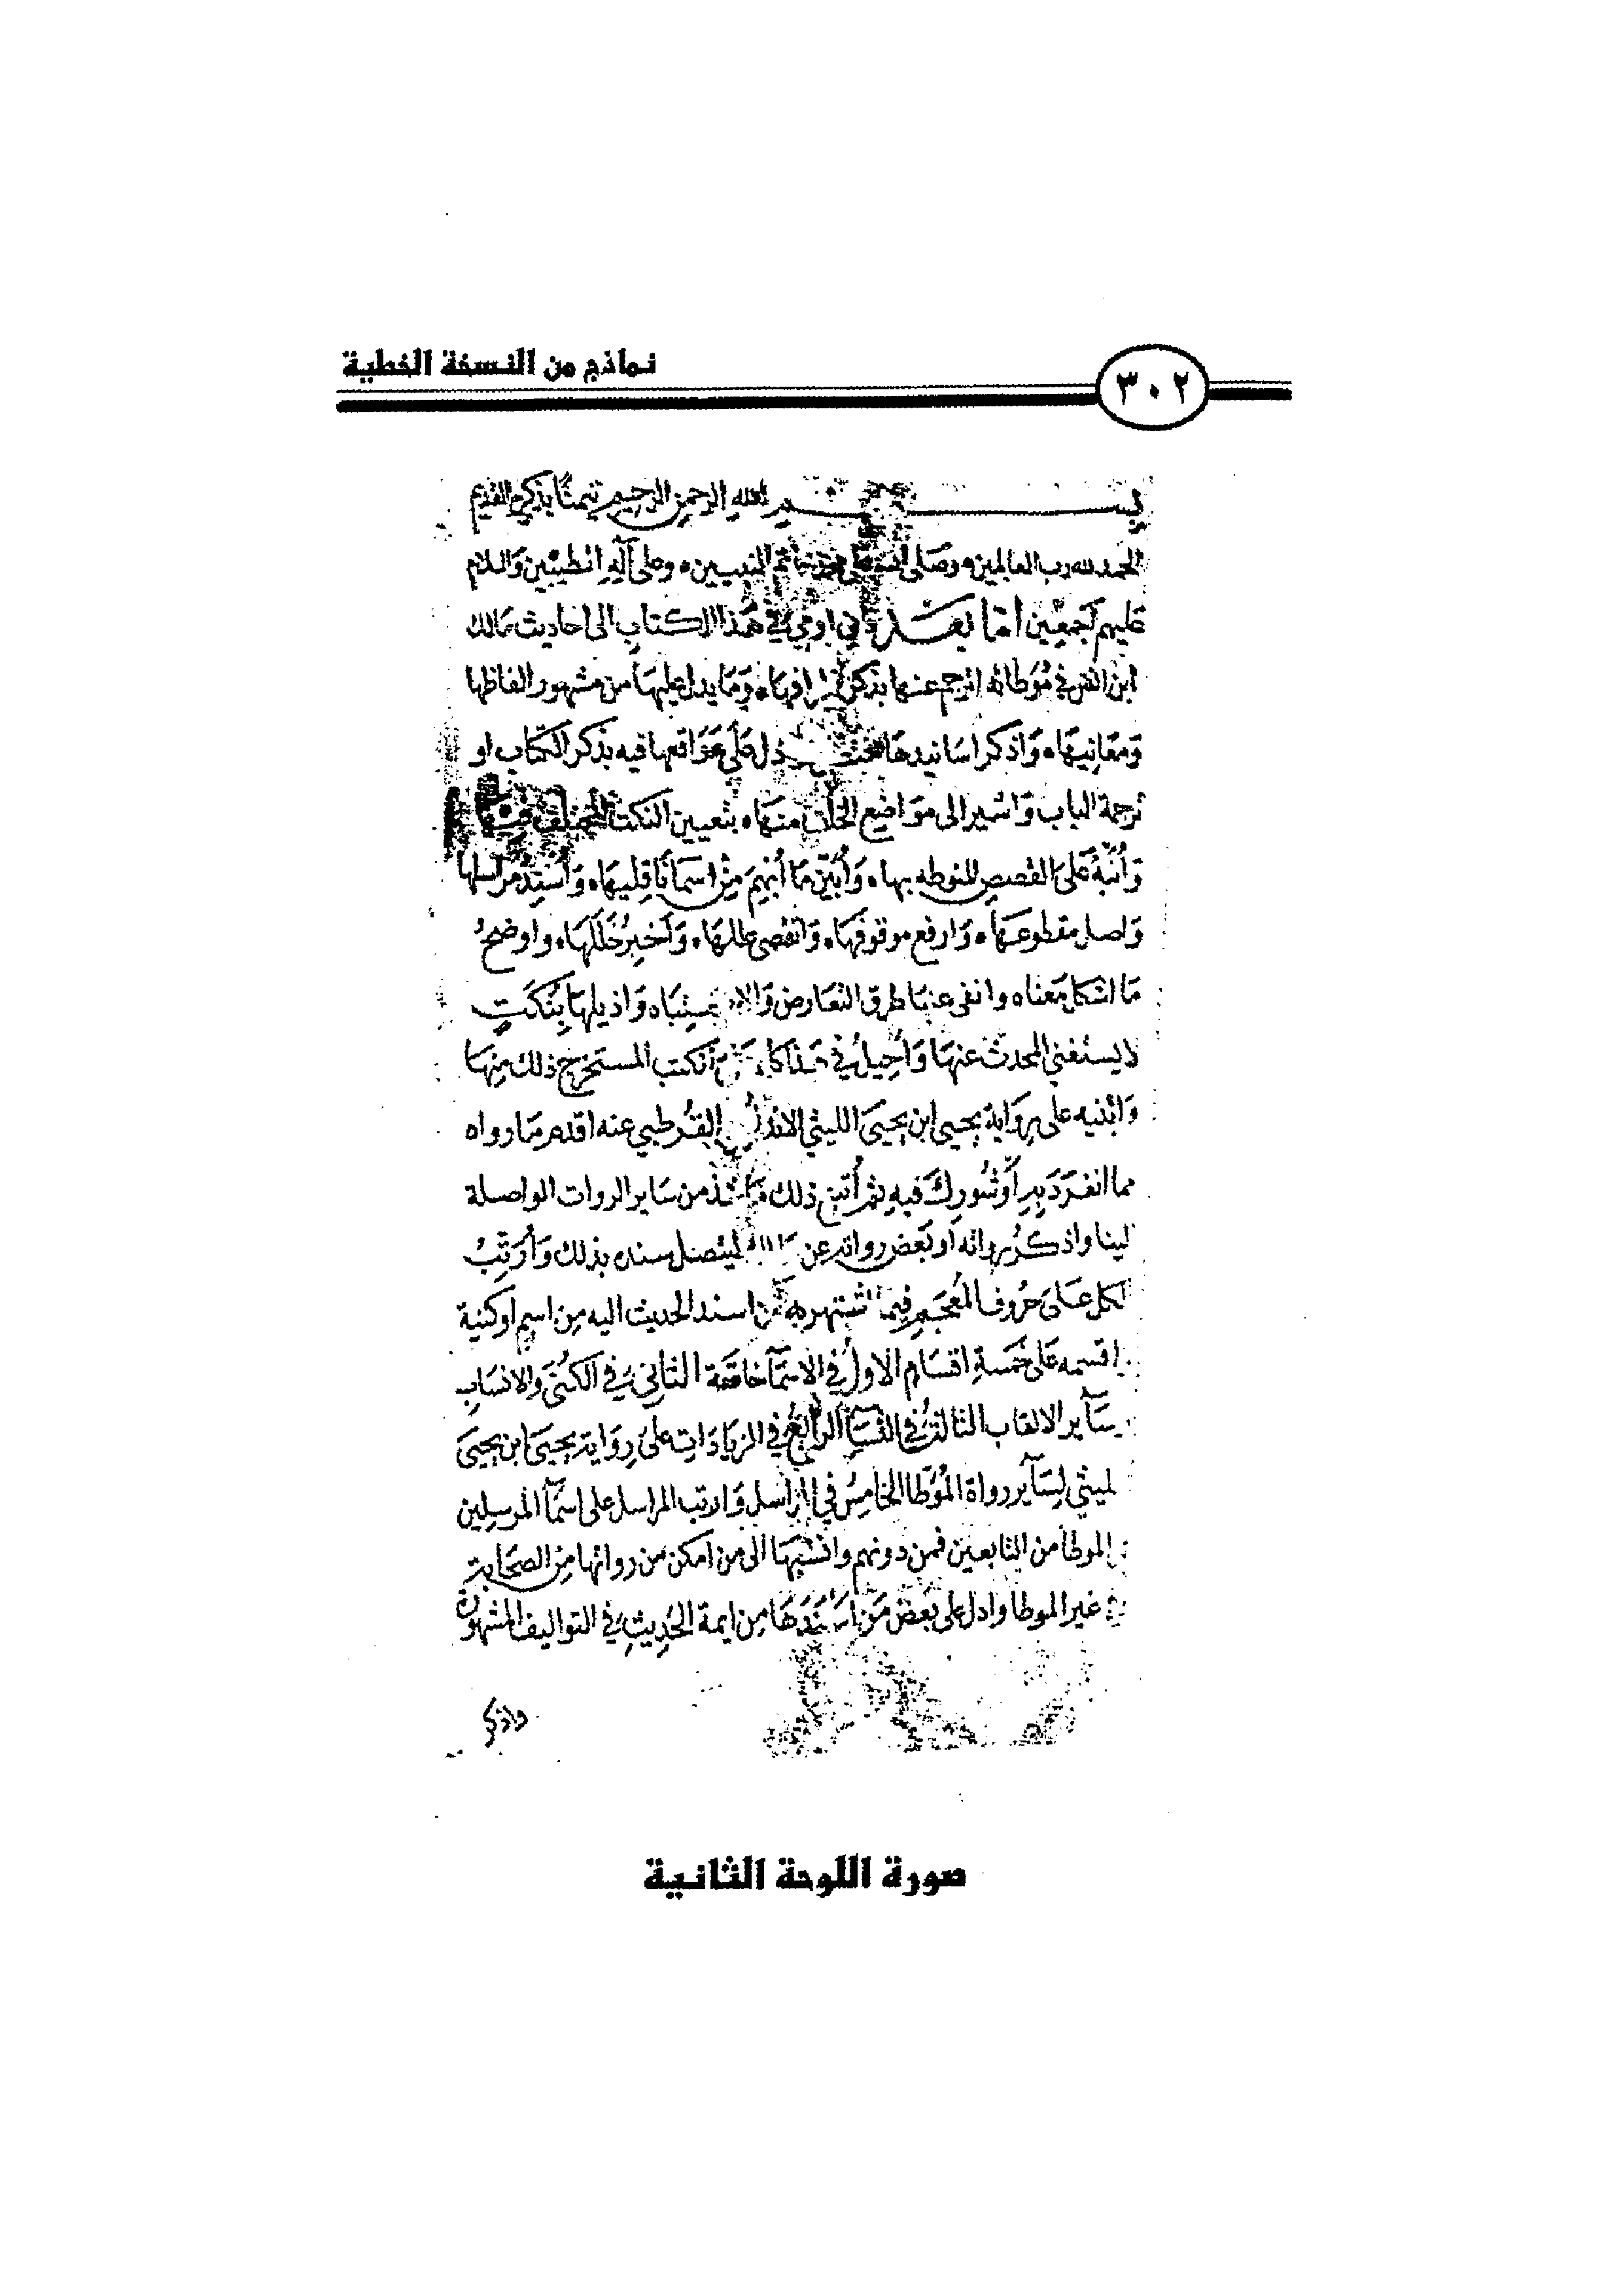 نماذج من النسخة الخطية
٣٠٢
بسم الله الرحمن الرحيم تيمنا بذكره القديم
الحمد لله رب العالمين وصلى الله على محمد خاتم النبيين وعلى آله الطيبين والسلام
عليهم أجمعين أما بعد فإني أومئ في هذا الكتاب الى احاديث مالك
ابن انس في موطائه اترجم عنها بذكر اطرافها وما يدل عليها من مشهور الفاظها
ومعانيها واذكر اسانيدها على مواقعها فيه بذكر الكتاب او
ترجمة الباب واشير الى مواضع الخلاف منها بتعيين النكت المختلف فيها
وأنبه على القصص المنوطه بها وأبين ما أبهم من اسماء ناقليها وأسند مراسلها
واصل مقطوعها وارفع موقوفها واتقصى عللها وأخبر خللها واوضح
ما اشكل معناه وانفي عنها طرق التعارض والاشتباه واذيلها بنكت
لا يستغني المحدث عنها وأحيل في هذا كله على الكتب المستخرج ذلك منها
وابنيه على رواية يحيى ابن يحيى الليثي الاندلسي القرطبي عنه اقدم ما رواه
مما انفرد به أو شورك فيه ثم أتبع ذلك ما شذ من ساير الروات الواصلة
لينا واذكر رواته أو بعض رواته عن مالك ليتصل سنده بذلك وأرتب
لكل على حروف المعجم فيما اشتهر به من اسند الحديث اليه من اسم او كنية
اقسمه على خمسة اقسام الاول في الاسماء خاصة الثاني في الكنى والانساب
سآير الالقاب الثالث في النساء الرابع في الزيادات على رواية يحيى ابن يحيى
لليثي لسآير رواة الموطا الخامس في المراسل وارتب المراسل على اسماء المرسلين
الموطا من التابعين فمن دونهم وانسبها الى من امكن من رواتها من الصحابة
في غير الموطا وادل على بعض من اسندها من ايمة الحديث في التواليف المشهورة
واذكر
صورة اللوحة الثانية